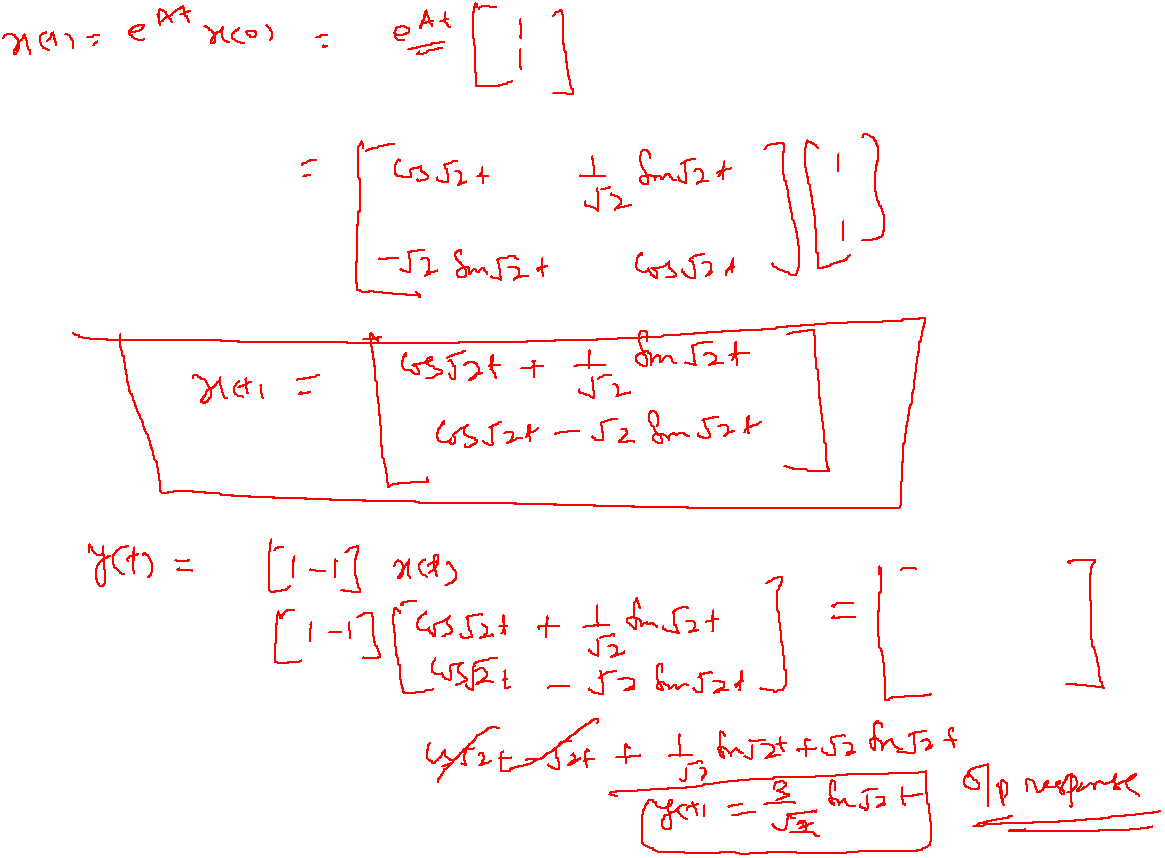 x(t) = e^{At} x(0) = e^{At} [1 1]
= [cos √2t 1/√2 Sin √2t
-√2 Sin √2t cos √2t] [1 1]
x(t) = [cos √2t + 1/√2 Sin √2t
cos √2t - √2 Sin √2t]
y(t) = [1 -1] x(t)
[1 -1] [cos √2t + 1/√2 Sin √2t
cos √2t - √2 Sin √2t] = [ ]
cos √2t - √2t + 1/√2 Sin √2t + √2 Sin √2t
y(t) = 3/√2 Sin √2t o/p response